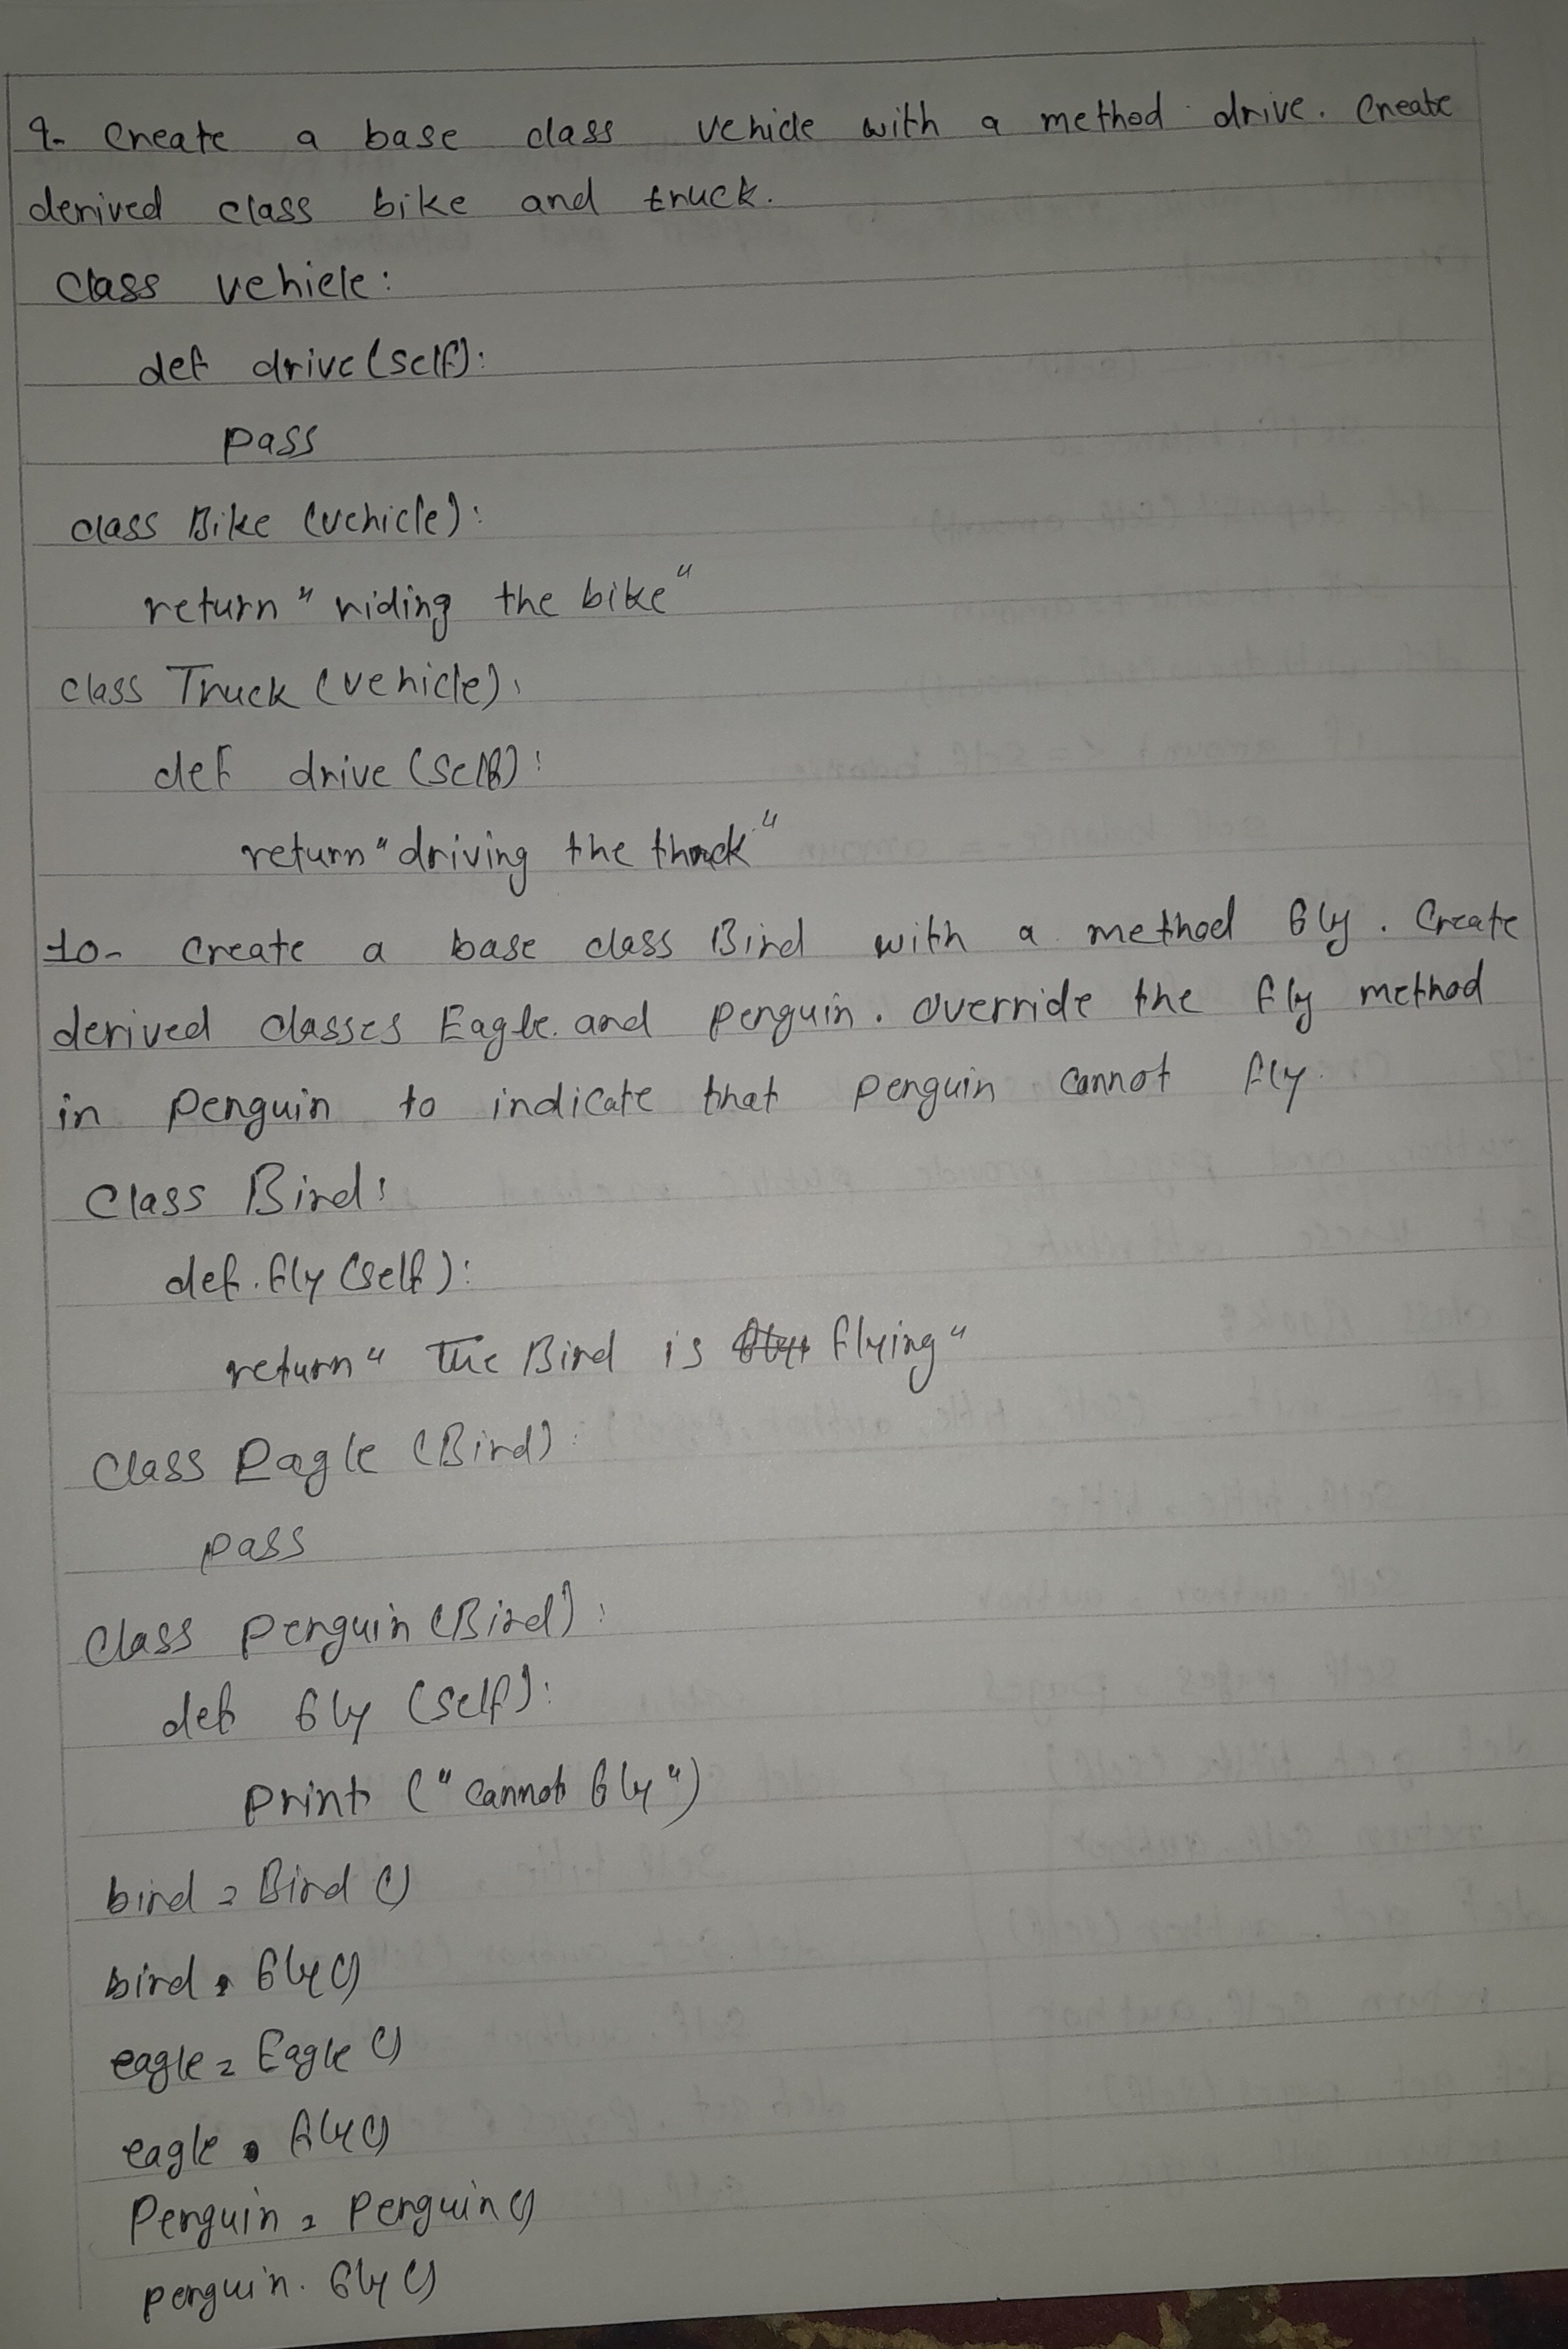 9- Create a base class vehicle with a method drive. Create
derived class bike and truck.
Class vehicle:
def drive(self):
pass
class Bike (vehicle):
return "riding the bike"
class Truck (vehicle):
def drive (self):
return "driving the truck"
10- Create a base class Bird with a method fly. Create
derived classes Eagle and penguin. override the fly method
in penguin to indicate that penguin cannot fly.
Class Bird:
def fly (self):
return "The Bird is flying"
Class Eagle (Bird):
pass
Class penguin (Bird):
def fly (self):
print ("cannot fly")
bird = Bird ()
bird. fly()
eagle = Eagle ()
eagle. fly()
Penguin = Penguin()
penguin. fly()